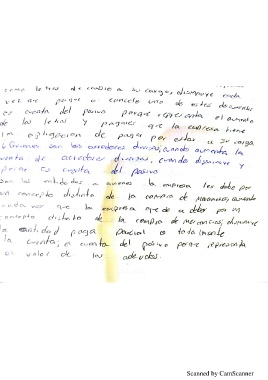 como letras de cambio a su cargo, disminuye cada
vez que pague o cancele uno de estos documentos
es cuenta del pasivo porque representa el aumento
de las letras y pagares que la empresa tiene
la obligacion de pagar por estar a su cargo
6 Quienes son los acredores diversos, cuando aumenta la
cuenta de acredores diversos, cuando disminuye y
porque es cuenta del pasivo
son las entidades a quienes la empresa les debe por
un concepto distinto de la compra de mercancias, aumenta
cada vez que la empresa quede a deber por un
concepto distinto de la compra de mercancias, disminuye
la cantidad pagada parcial o totalmente
la cuenta, es cuenta del pasivo porque representa
el valor de los adeudos.
Scanned by CamScanner